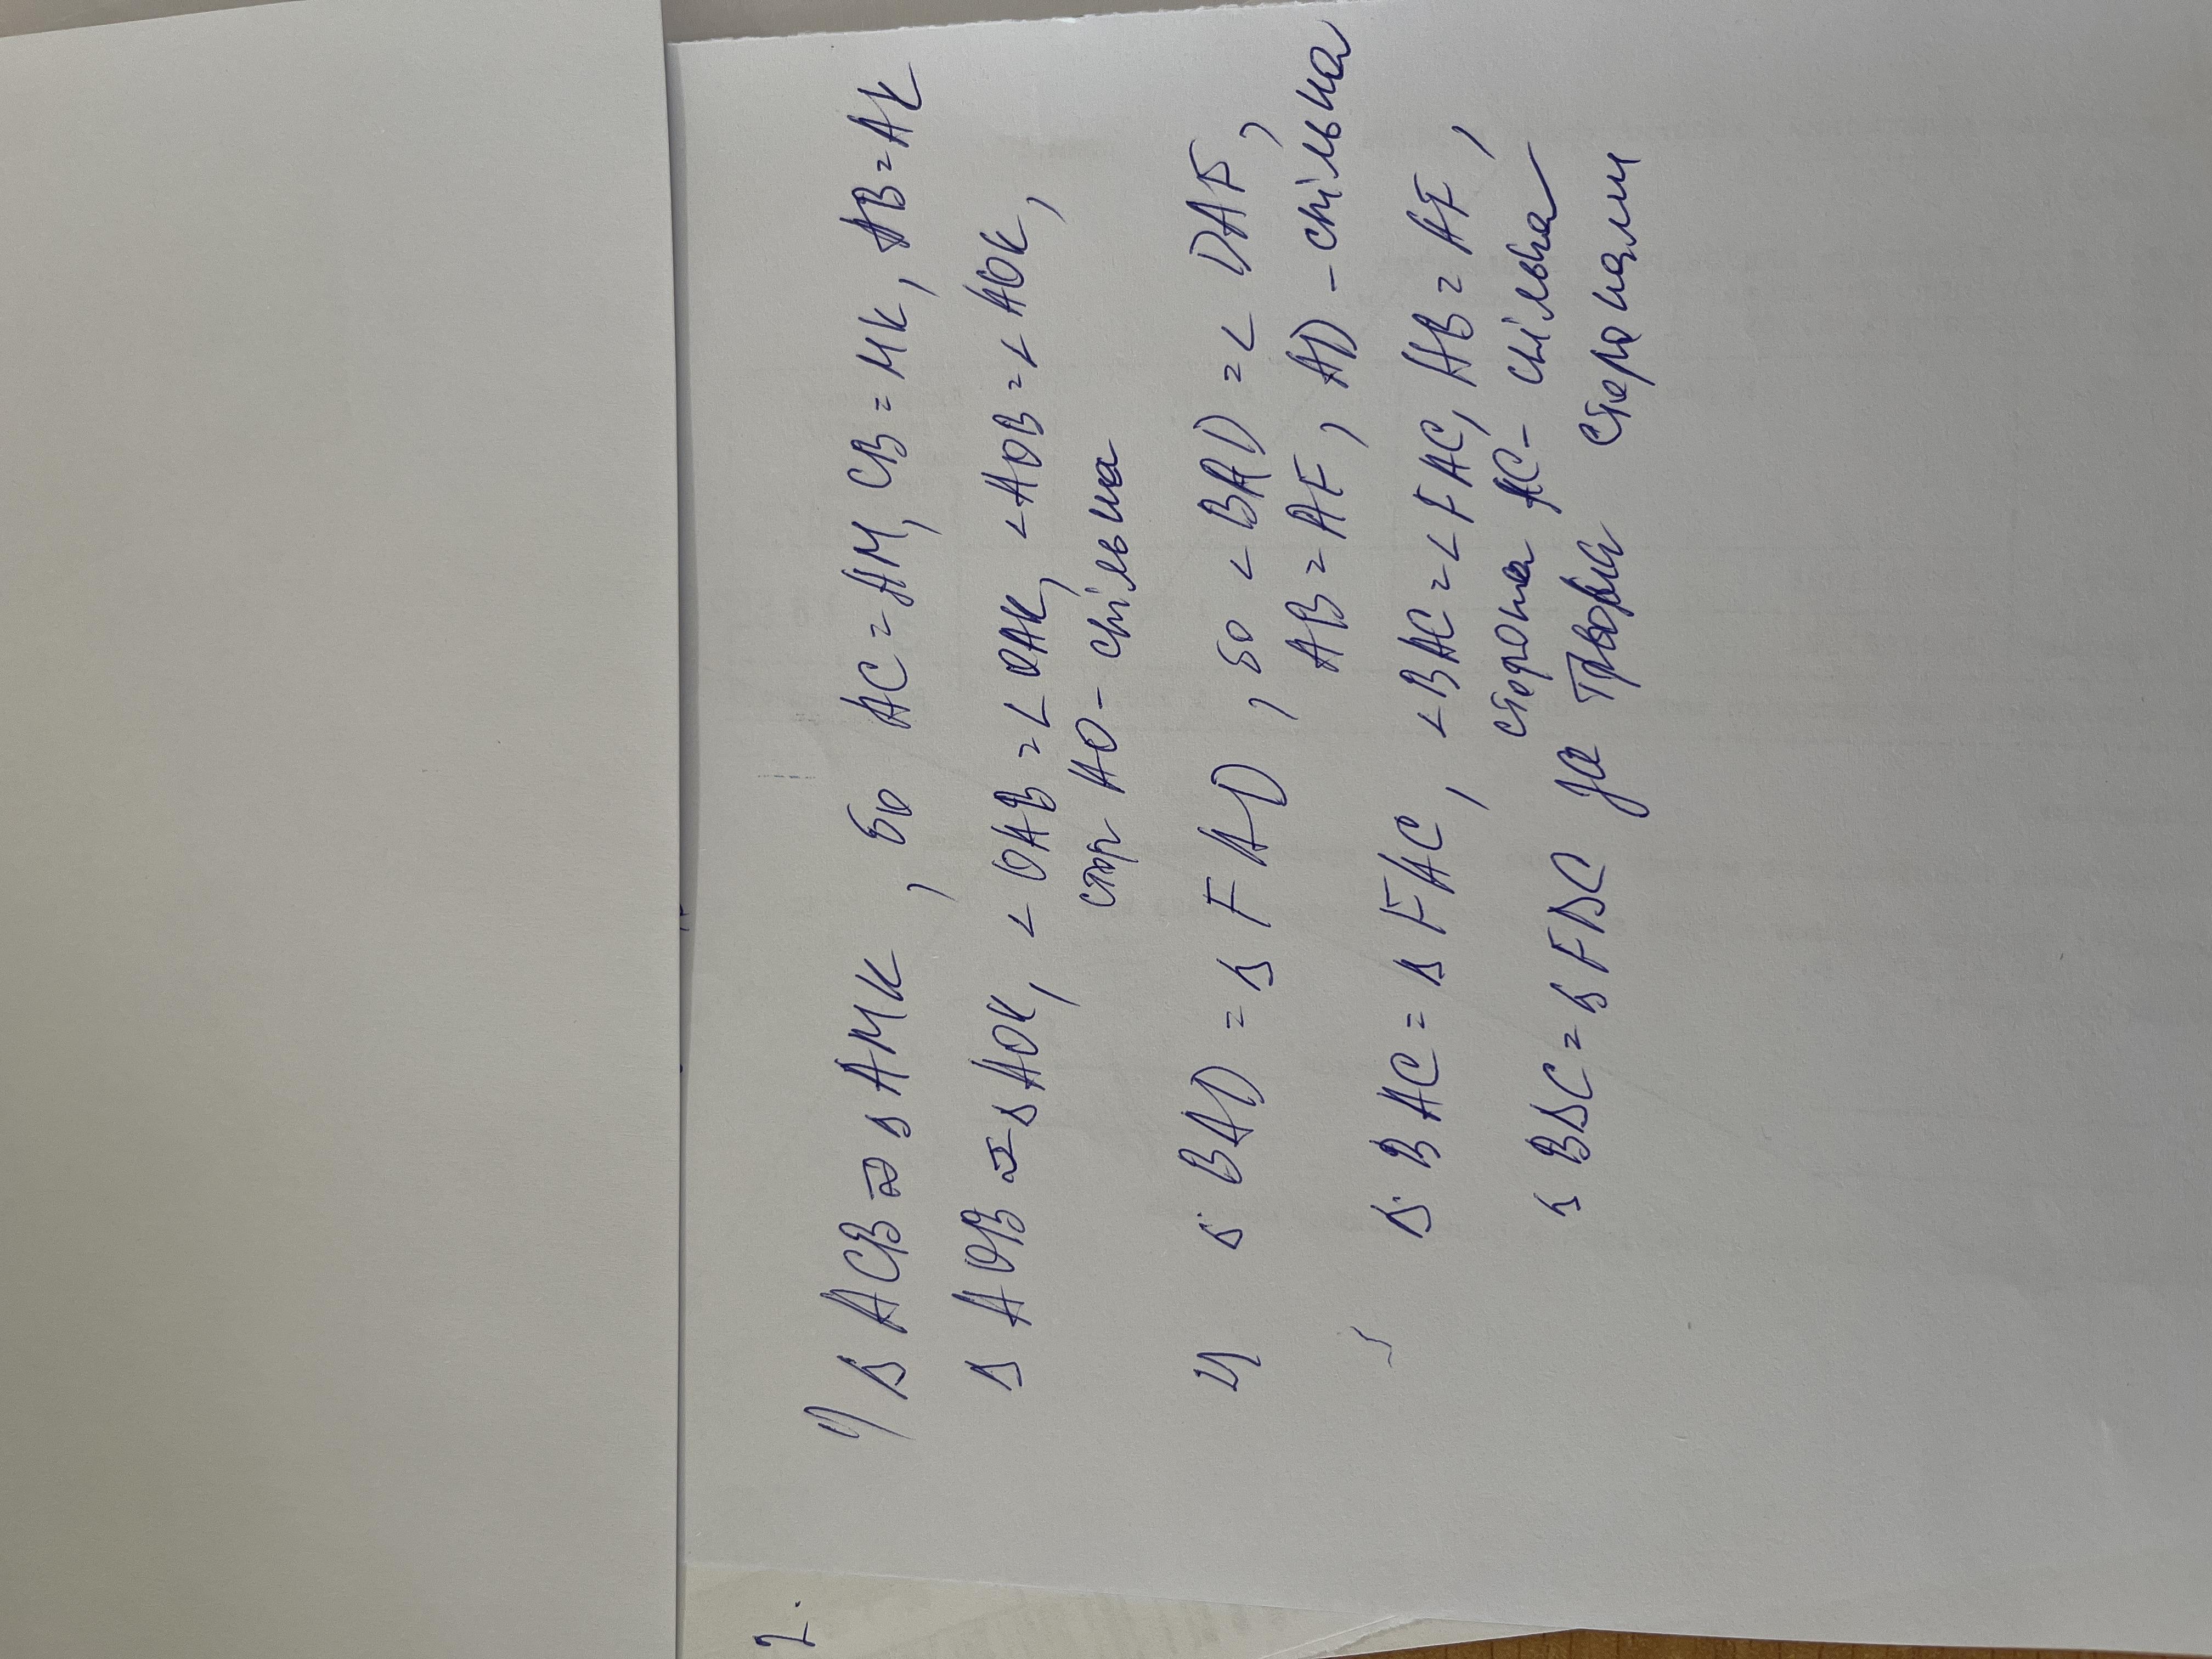 2.
1) Δ ACB = Δ AMK, бо AC = AM, CB = MK, AB = AK
Δ AOB = Δ AOK, ∠OAB = ∠OAK, ∠AOB = ∠AOK,
стор AO - спільна
2) Δ BAD = Δ FAD, бо ∠BAD = ∠DAF,
AB = AF, AD - спільна
Δ BAC = Δ FAC, ∠BAC = ∠FAC, AB = AF,
сторона AC - спільна
Δ BDC = Δ FDC за трьома сторонами